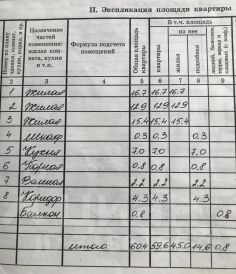 II. Экспликация площади квартиры
Назначение частей помещения: жилая комната, кухня и т.п.
Формула подсчета помещений
Общая площадь квартиры
В т.ч. площадь
из нее
квартиры
жилая
подсобная
2 3 4 5 6 7 8 9
1 Жилая 16.7 16.7 16.7
2 Жилая 12.9 12.9 12.9
3 Жилая 15.4 15.4 15.4
4 Шкаф 0.3 0.3 0.3
5 Кухня 7.0 7.0 7.0
6 0.8 0.8 0.8
7 Ванная 2.2 2.2 2.2
8 Коридор 4.3 4.3 4.3
Балкон 0.8 0.8
итого 60.4 59.6 45.0 14.6 0.8